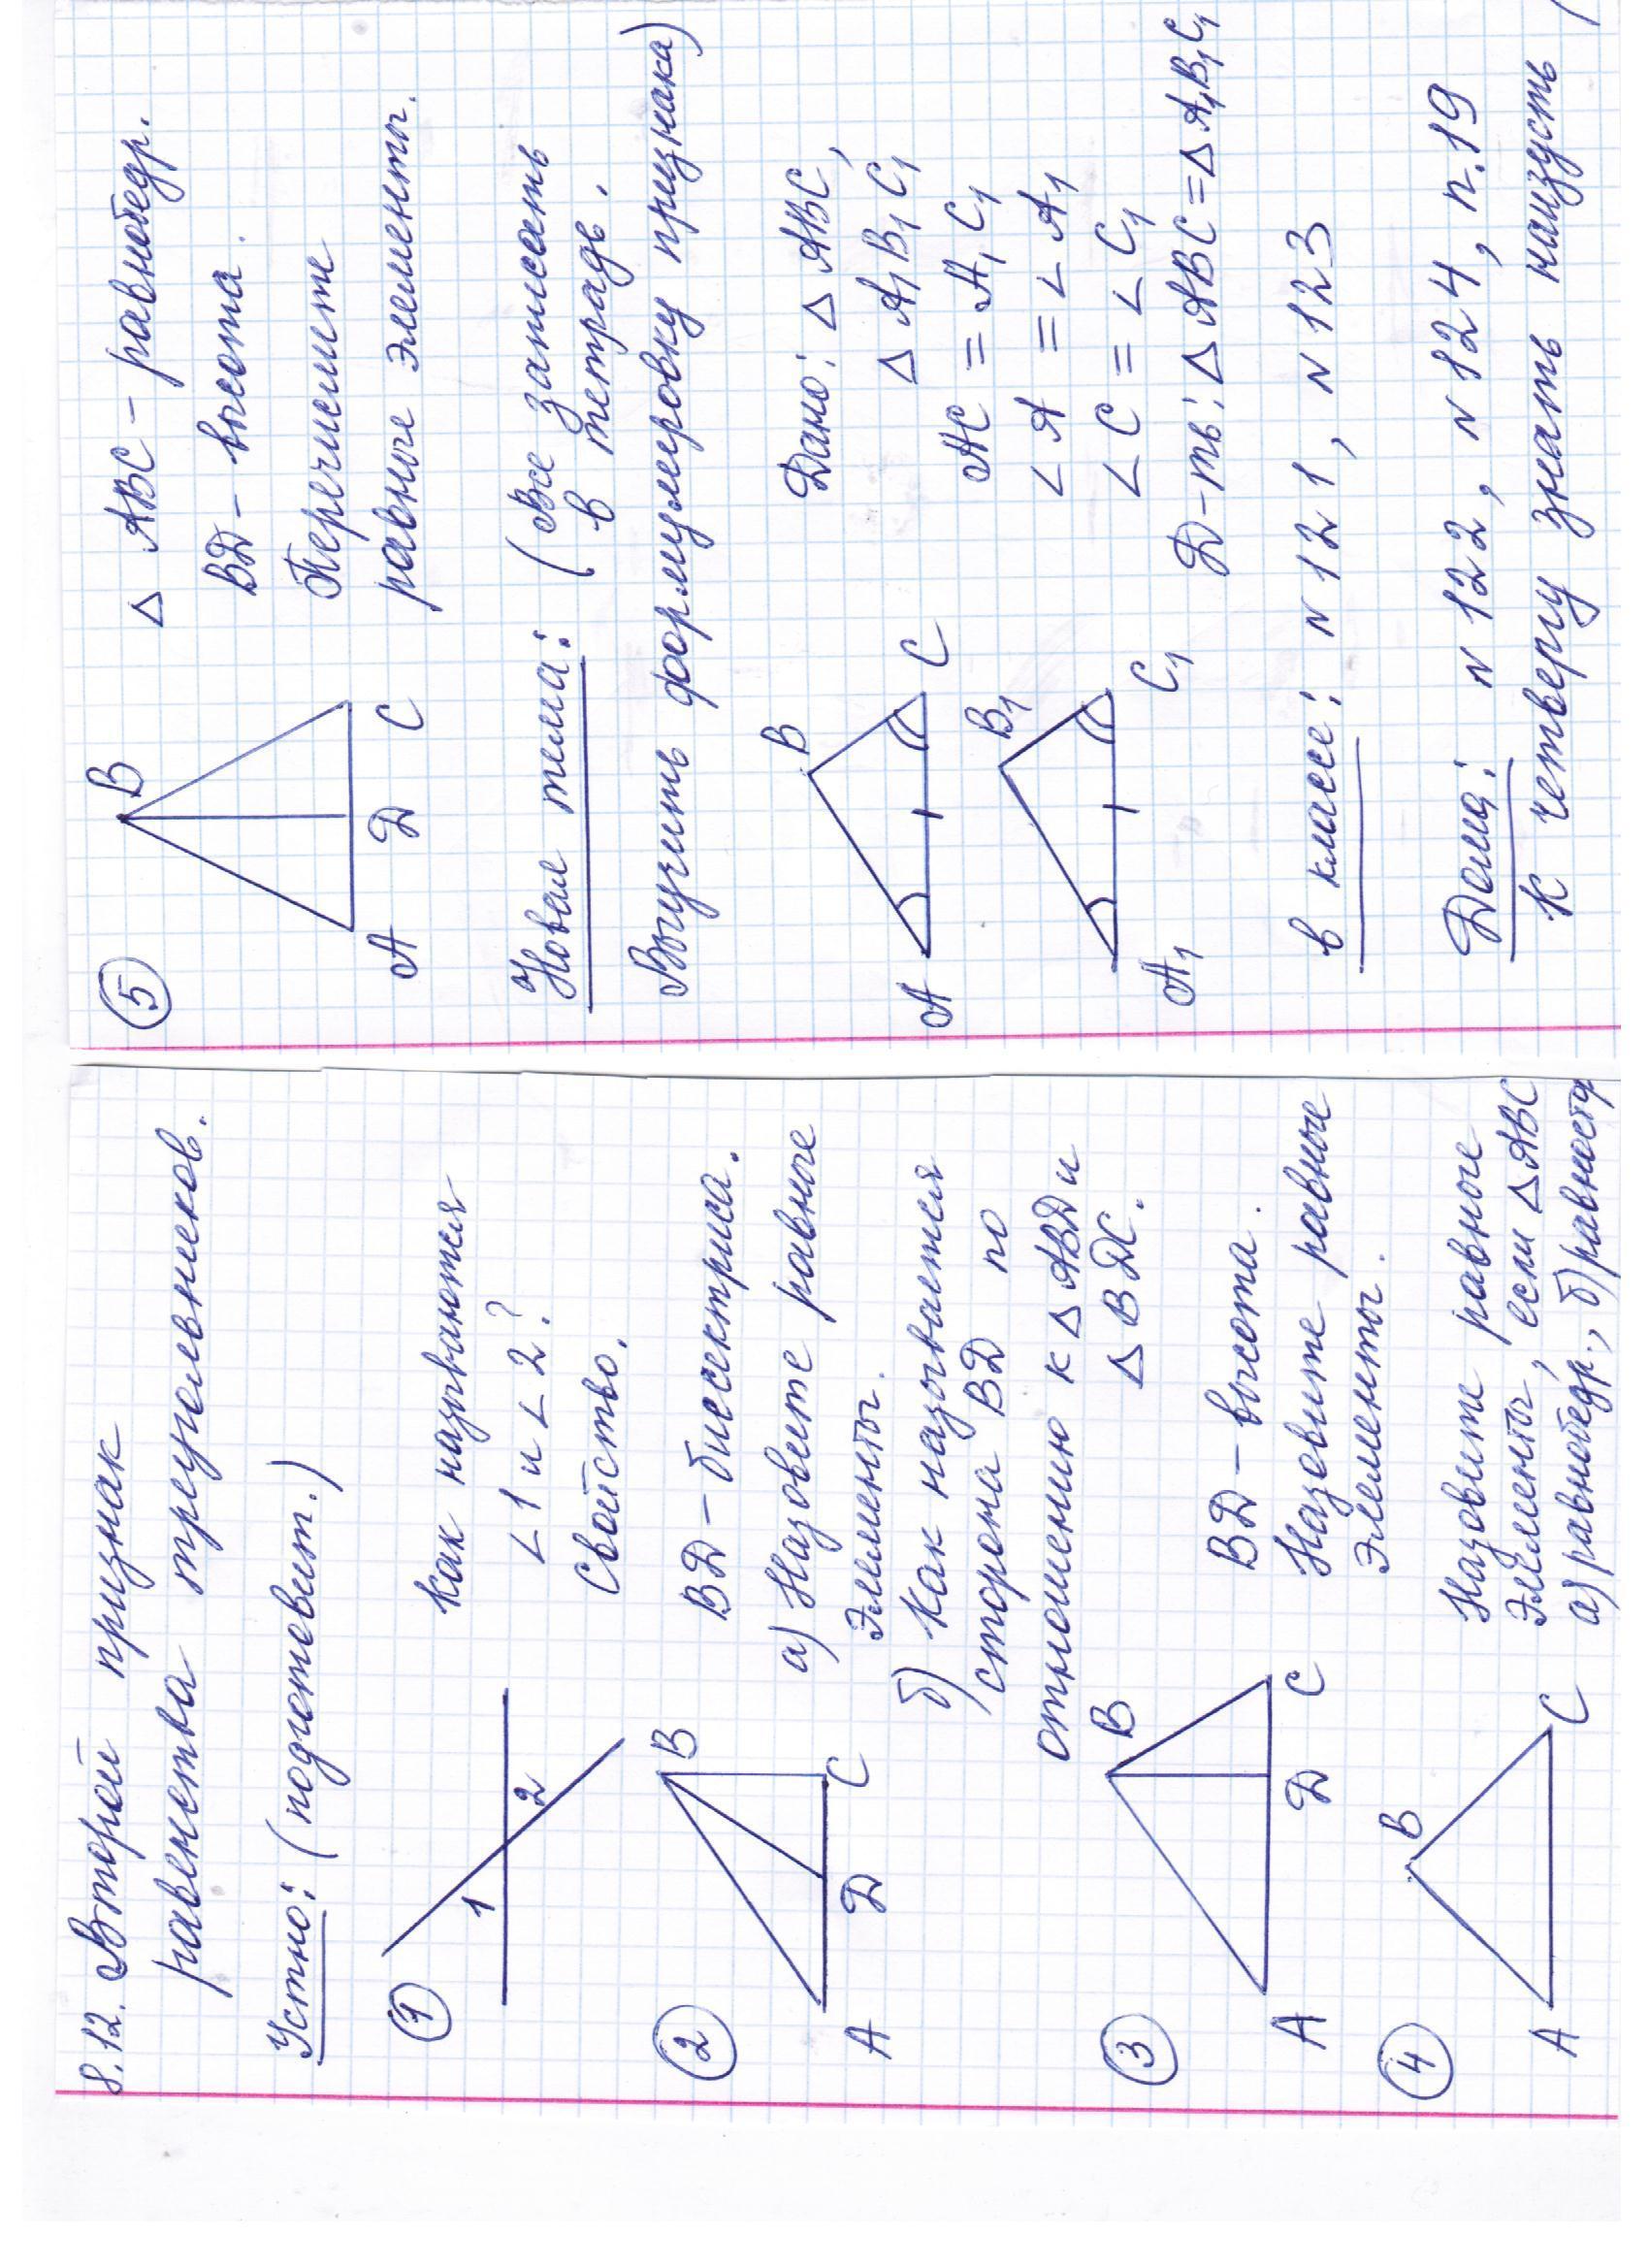 8.12. Второй признак
равенства треугольников.
Устно: (подготовит.)
1
1
2
Как называются
∠1 и ∠2?
Свойство.
2
B
A
Д
C
ВД – биссектриса.
а) Назовите равные
элементы.
б) Как называется
сторона ВД по
отношению к △ АВД и
△ ВДС.
3
B
A
Д
C
ВД – высота.
Назовите равные
элементы.
4
B
A
C
Назовите равные
элементы, если △ АВС
а) равнобедр., б) равностор
5
B
A
Д
C
△ АВС – равнобедр.
ВД – высота.
Перечислите
равные элементы.
Новая тема: (Все записать
в тетрадь.
Выучить формулировку признака)
B
A
C
B1
A1
C1
Дано: △ АВС,
△ А1 В1 С1
АС = А1 С1
∠ А = ∠ А1
∠ С = ∠ С1
Д-ть: △ АВС = △ А1В1С1
в классе: N 121, N 123
Дома: N 122, N 124, п.19
К четвергу знать наизусть